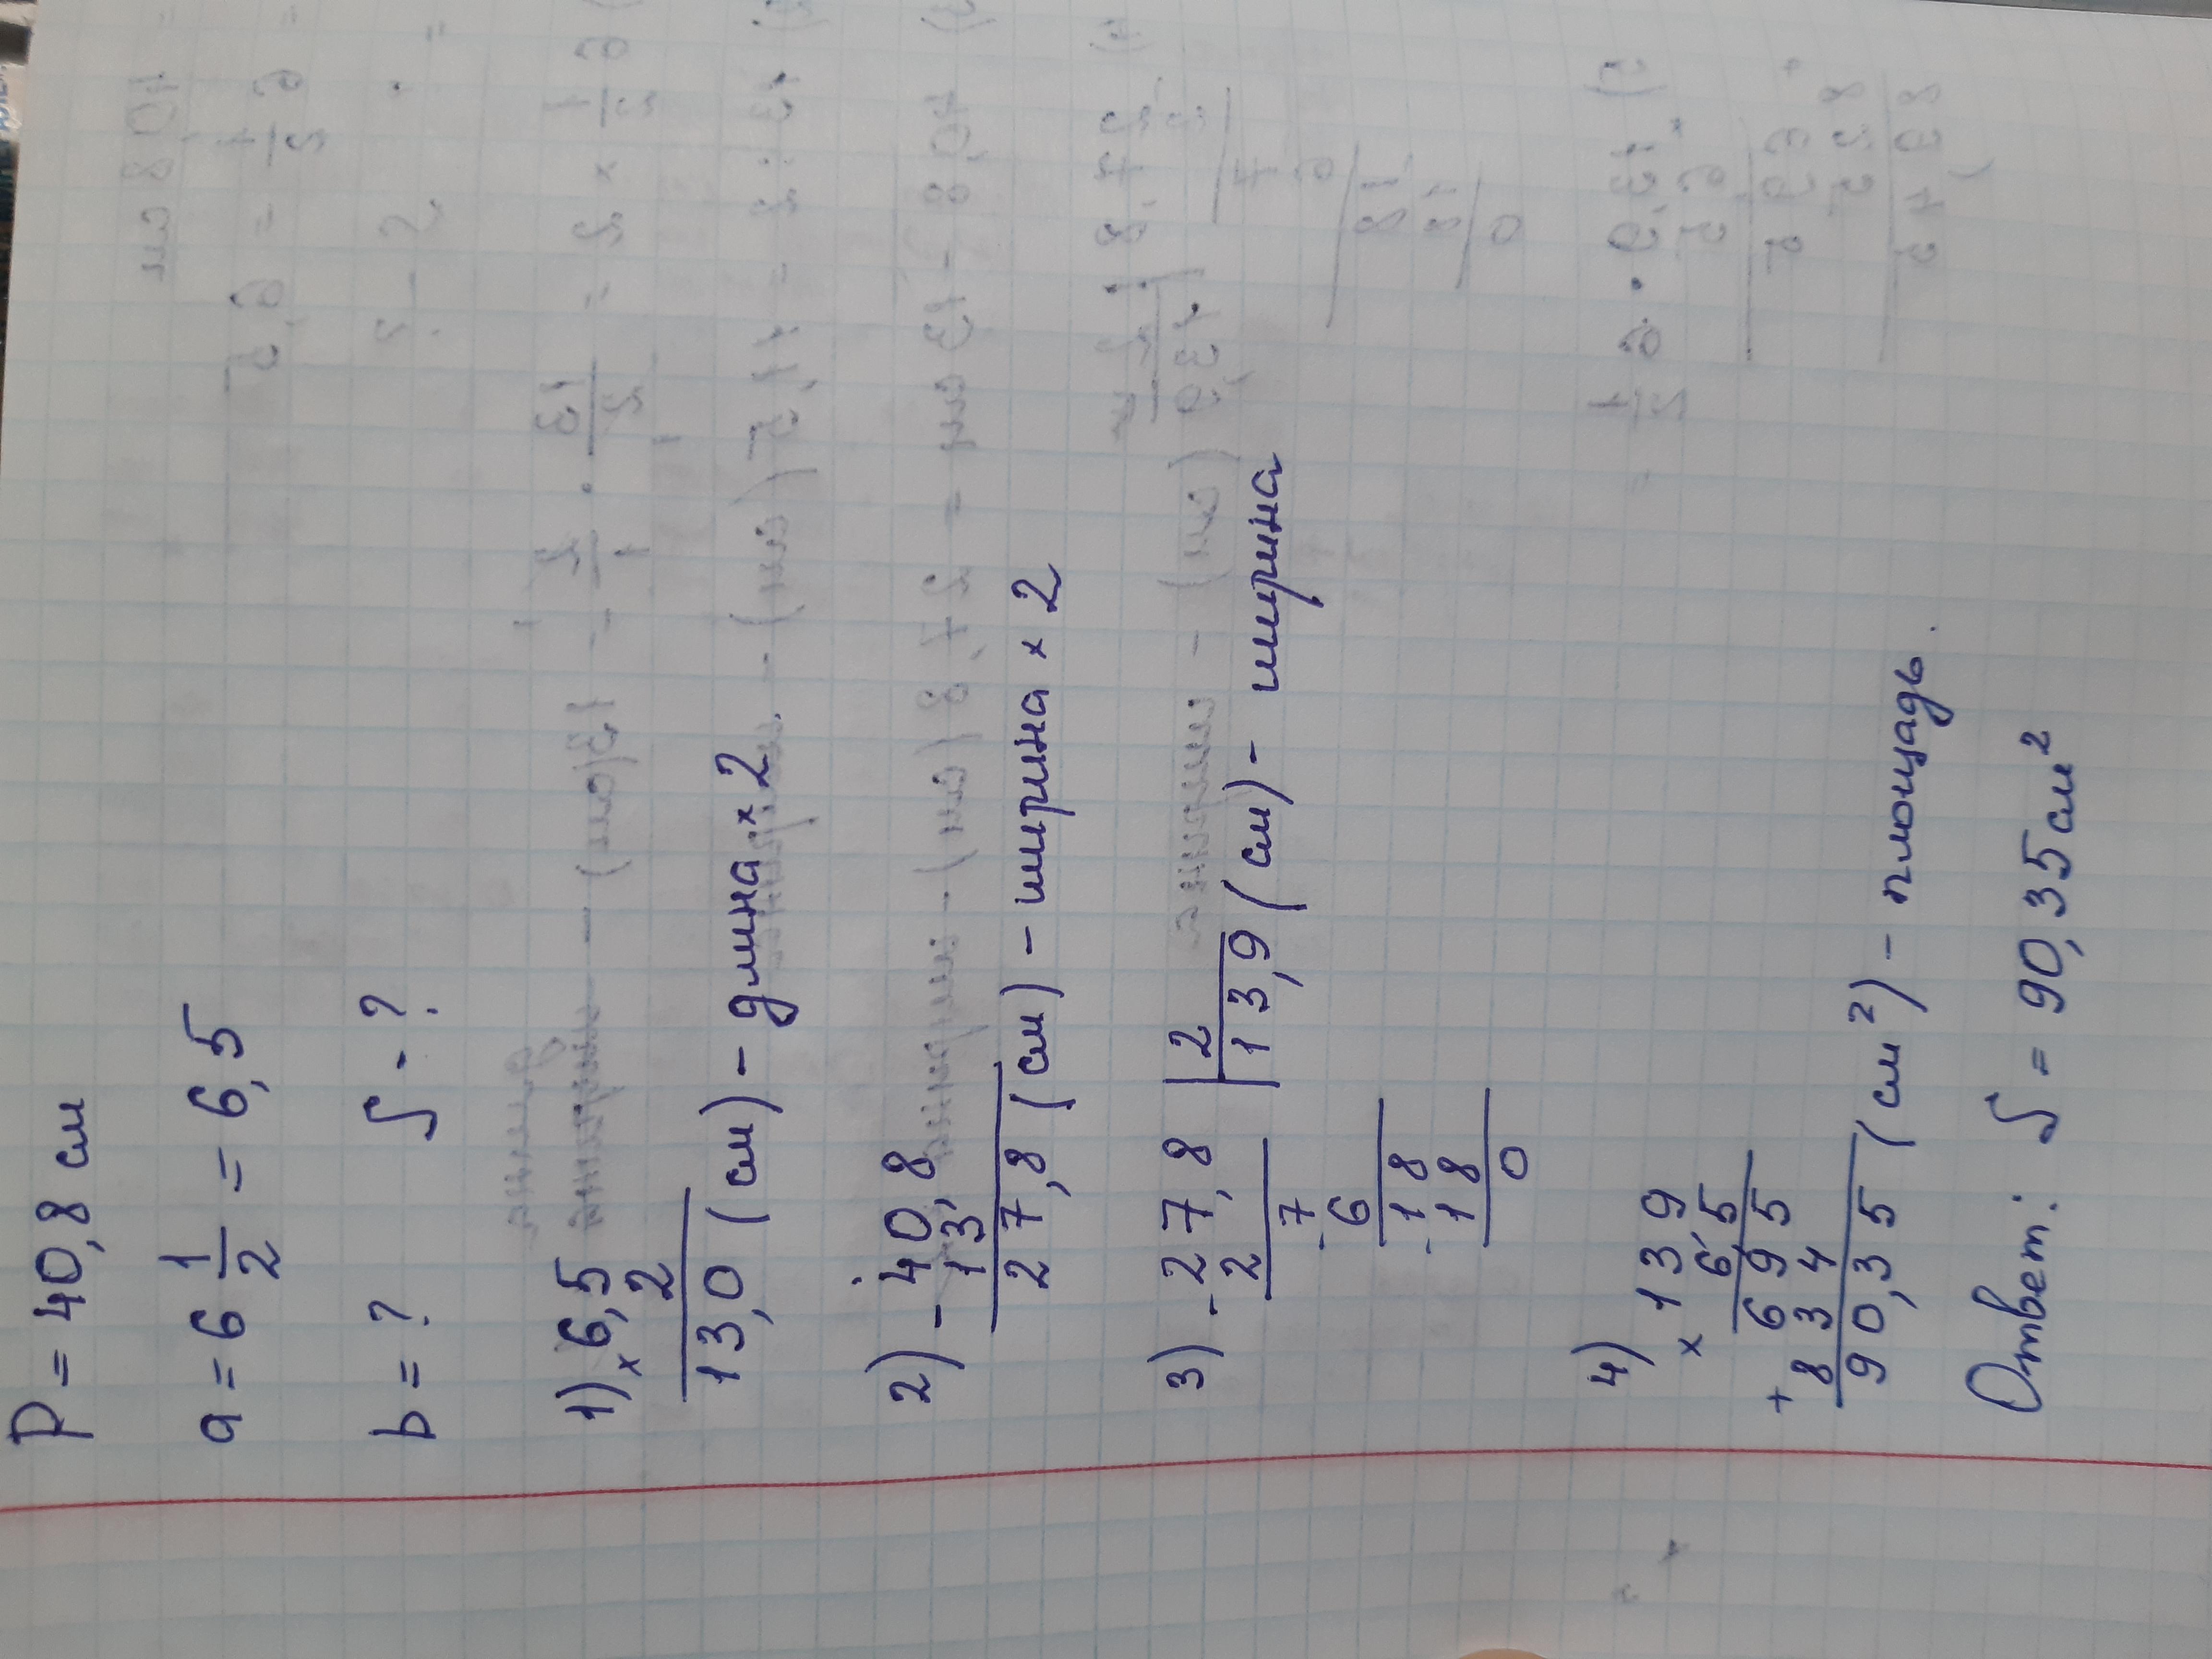 P = 40,8 см
a = 6 1/2 = 6,5
b = ? S - ?
1) × 6,5
2
13,0 (см) - длина × 2
2) - 40,8
13
27,8 (см) - ширина × 2
3) - 27,8 | 2
2 13,9 (см) - ширина
- 7
6
- 18
18
0
4) × 139
6,5
695
+ 834
90,35 (см²) - площадь.
Ответ: S = 90,35 см²